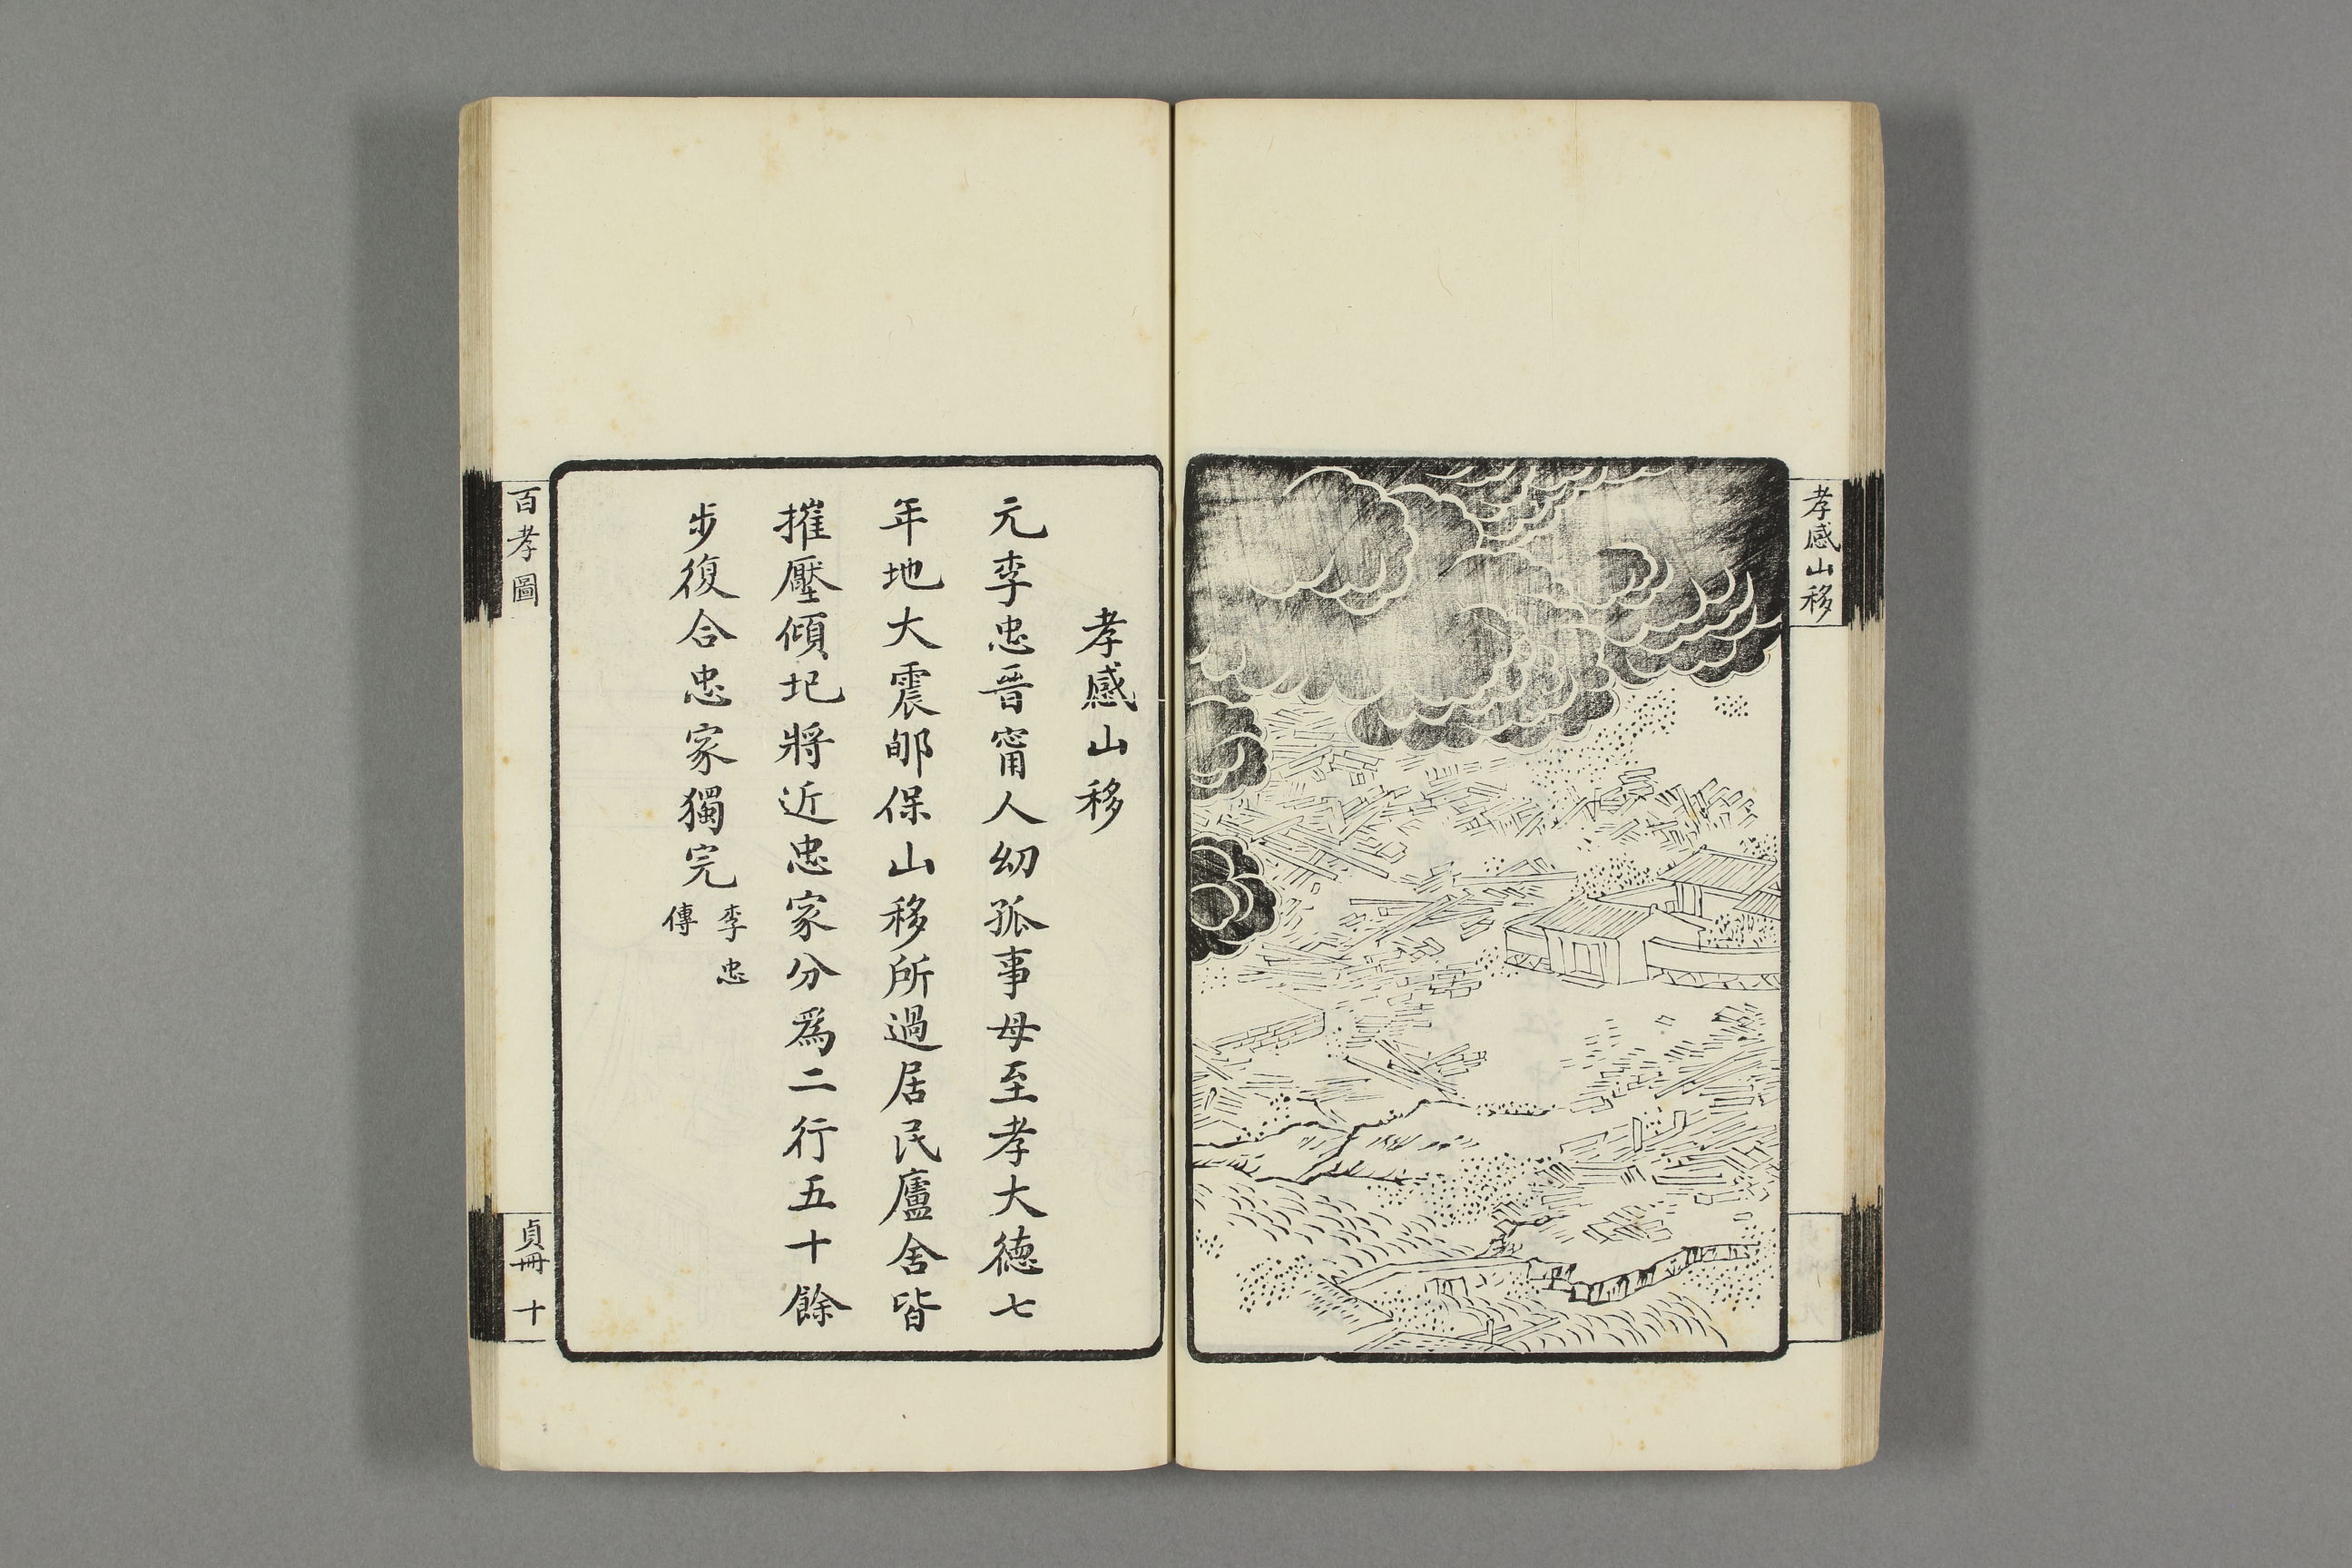 孝感山移
孝感山移
元李忠晉甯人幼孤事母至孝大德七
年地大震郇保山移所過居民廬舍皆
摧壓傾圮將近忠家分爲二行五十餘
步復合忠家獨完
李忠
傳
百孝圖
貞冊 十